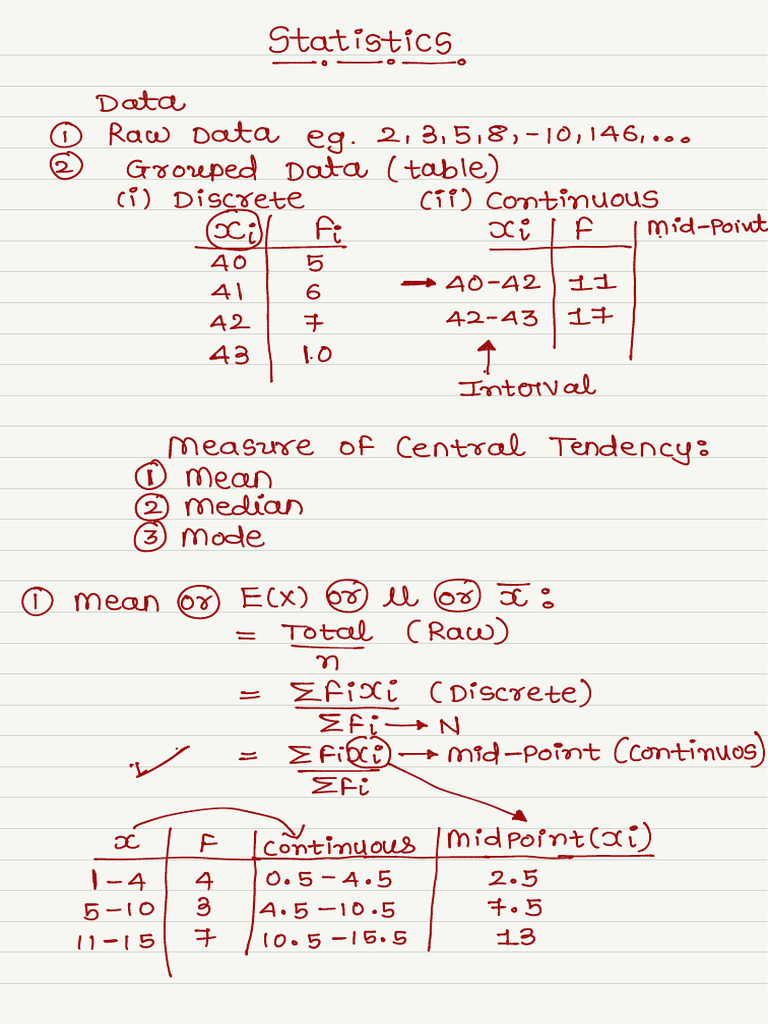 Statistics
Data
① Raw Data eg. 2, 3, 5, 8, -10, 146, ...
② Grouped Data (table)
(i) Discrete (ii) Continuous
xi fi xi F mid-point
40 5
41 6 → 40-42 11
42 7 42-43 17
43 10
↑
Interval
Measure of Central Tendency:
① mean
② median
③ mode
① mean or E(x) or μ or x̄ :
= Total (Raw)
n
= Σfixi (Discrete)
Σfi → N
✓ = Σfixi → mid-point (continuos)
Σfi
x F continuous Midpoint (xi)
1-4 4 0.5-4.5 2.5
5-10 3 4.5-10.5 7.5
11-15 7 10.5-15.5 13